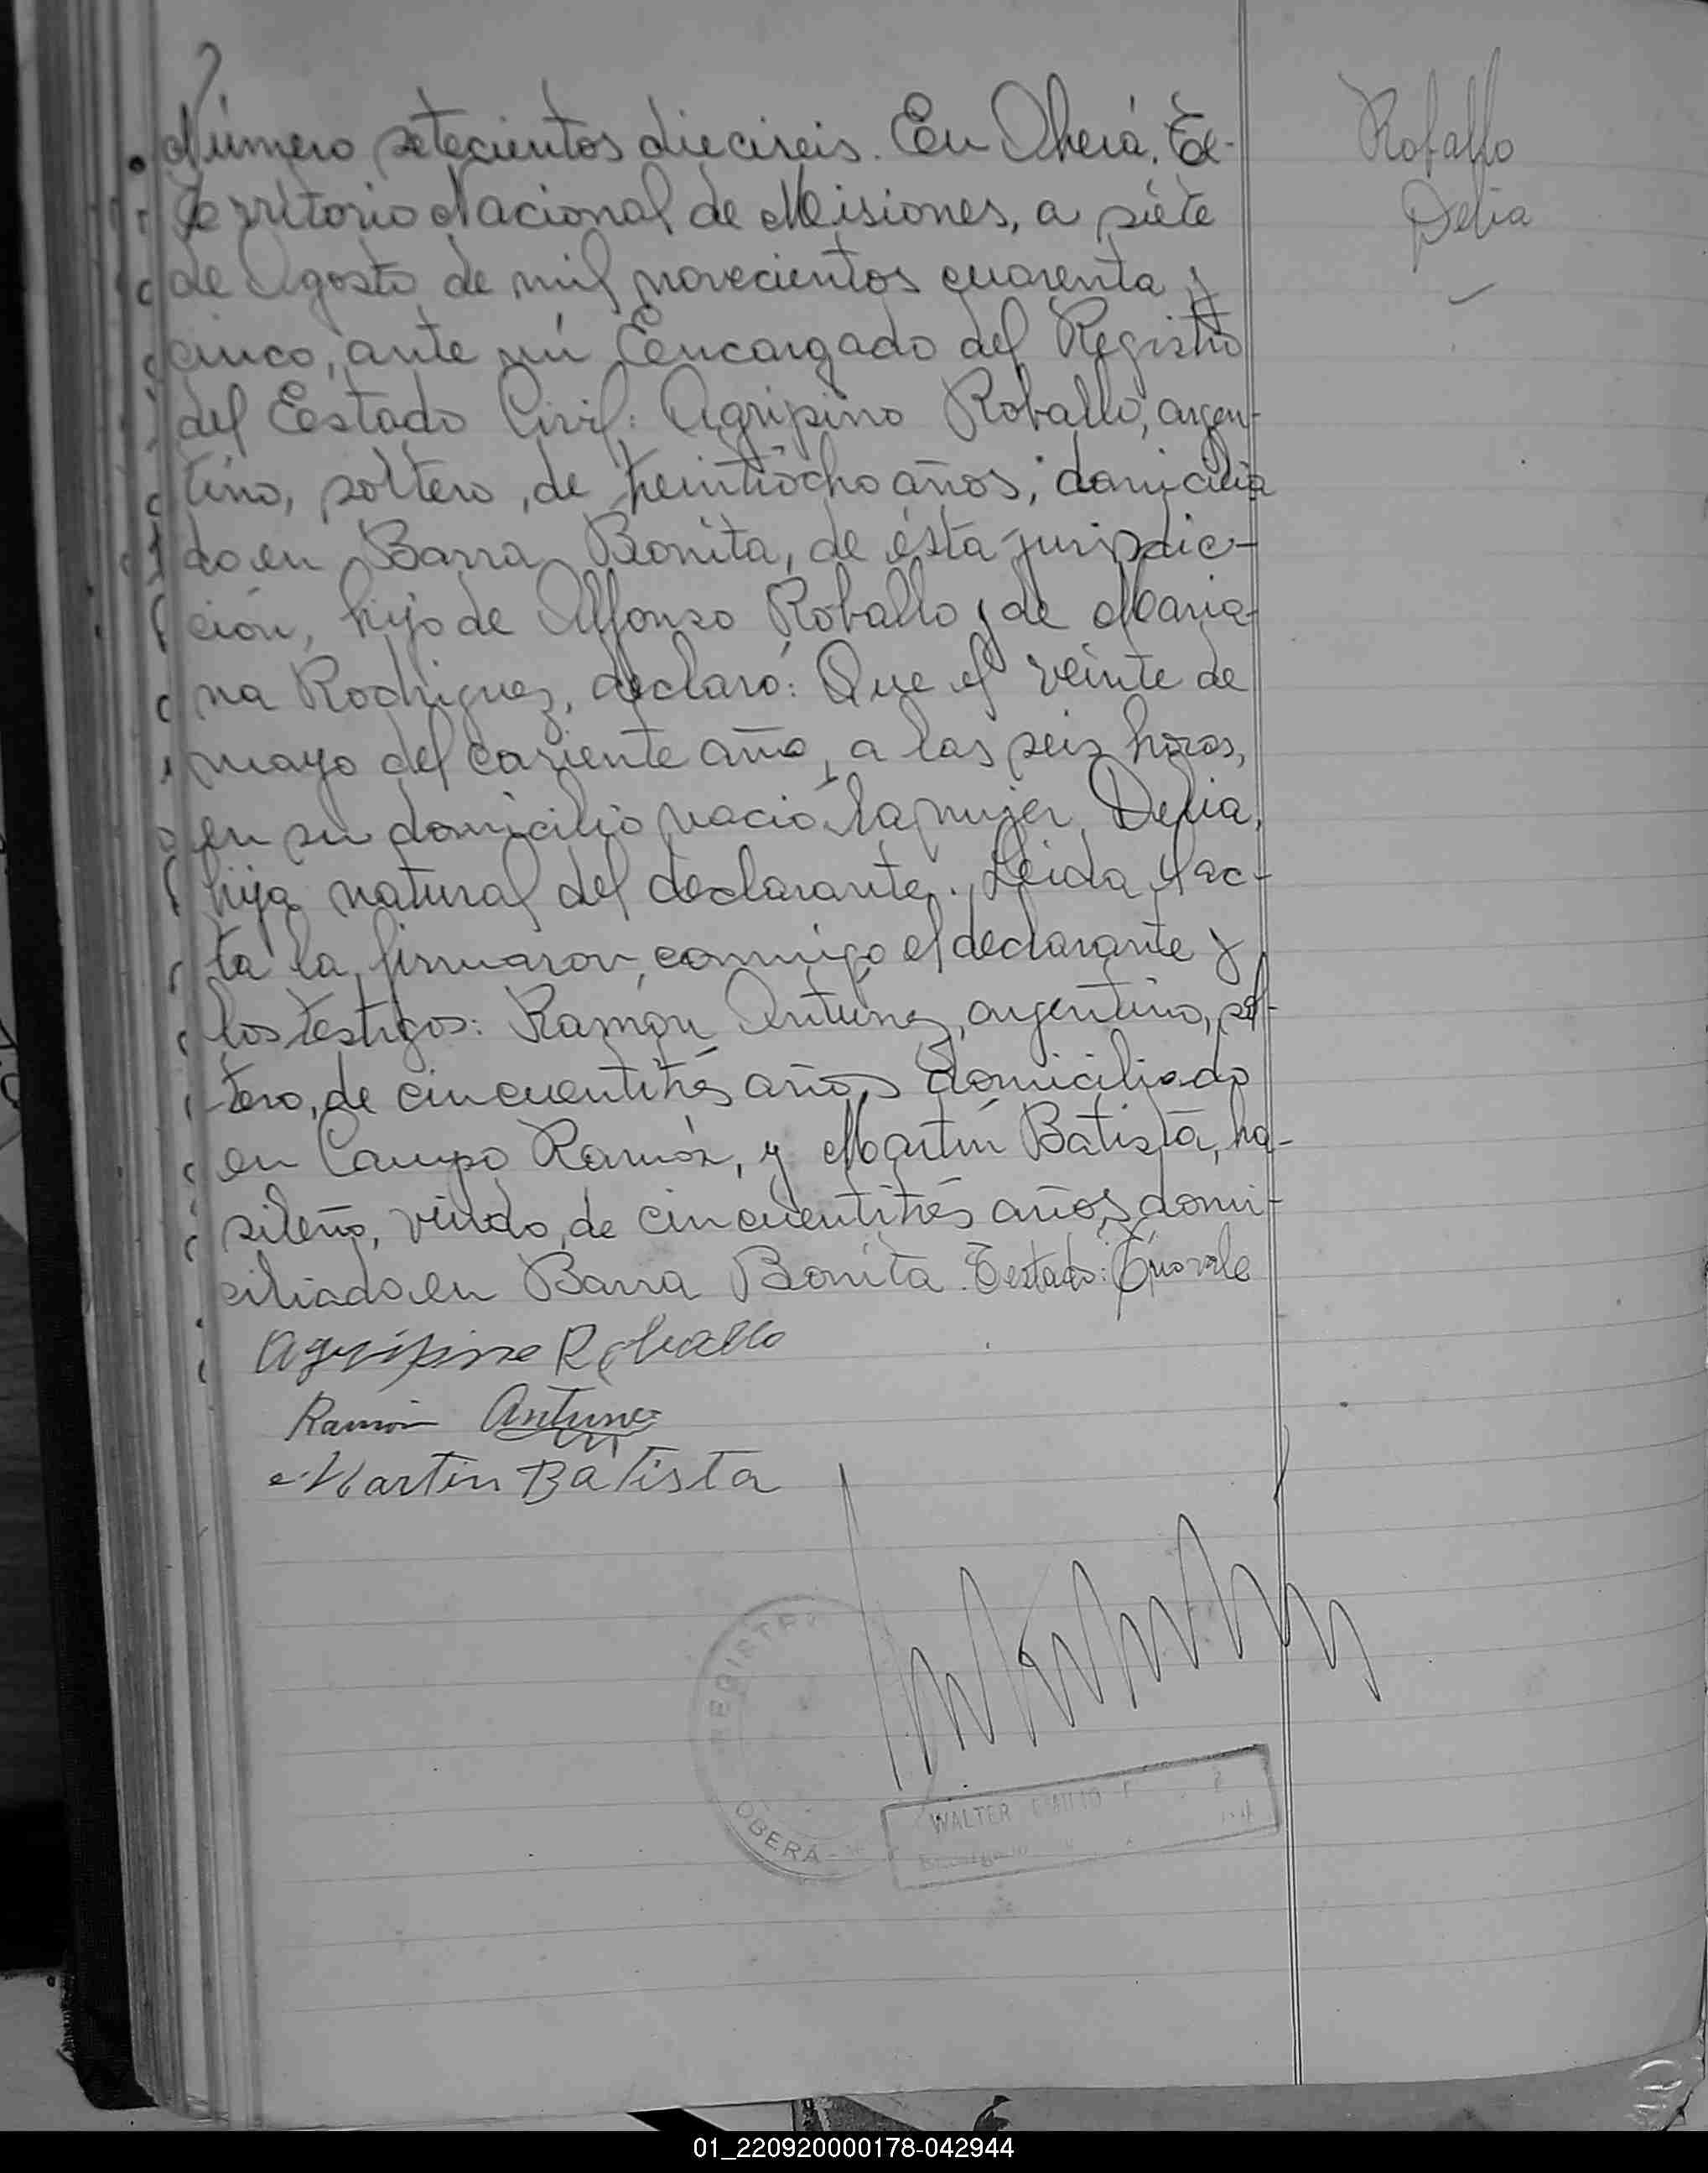 Número setecientos dieciseis. En Oberá, Te-
Territorio Nacional de Misiones, a siete
de Agosto de mil novecientos cuarenta y
cinco, ante mi Eencargado del Registro
del Eestado Civil: Agripino Roballo, argen-
tino, soltero, de treintiocho años, domicilia
do en Barra Bonita, de ésta jurisdic-
ción, hijo de Alfonso Roballo y de Maria-
na Rodriguez, declaró: Que el veinte de
mayo del coriente año, a las seis horas,
en su domicilio nació la mujer Delia,
hija natural del declarante. Leida el ac-
ta la firmaron conmigo el declarante y
los testigos: Ramón Antunez, argentino, sol-
tero, de cincuentitrés años domiciliado
en Campo Ramón, y Martín Batista, bra-
sileño, viudo, de cincuentitrés años domi-
ciliado en Barra Bonita. Testado: no vale
Agripino Roballo
Ramón Antunez
Martin Batista
Roballo
Delia
REGISTRO
OBERÁ
WALTER EMILIO
01_220920000178-042944